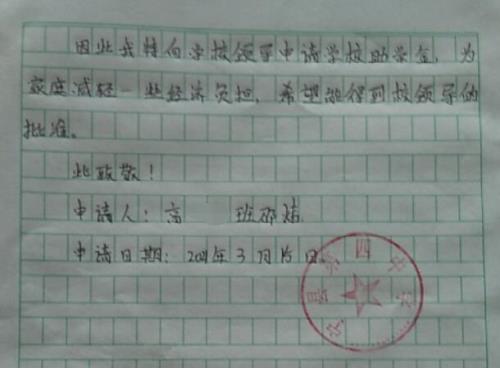 因此我特向学校领导申请学校助学金，为
家庭减轻一些经济负担，希望能得到校领导的
批准。
此致敬！
申请人：高 班
申请日期：年3月日
县第四中学